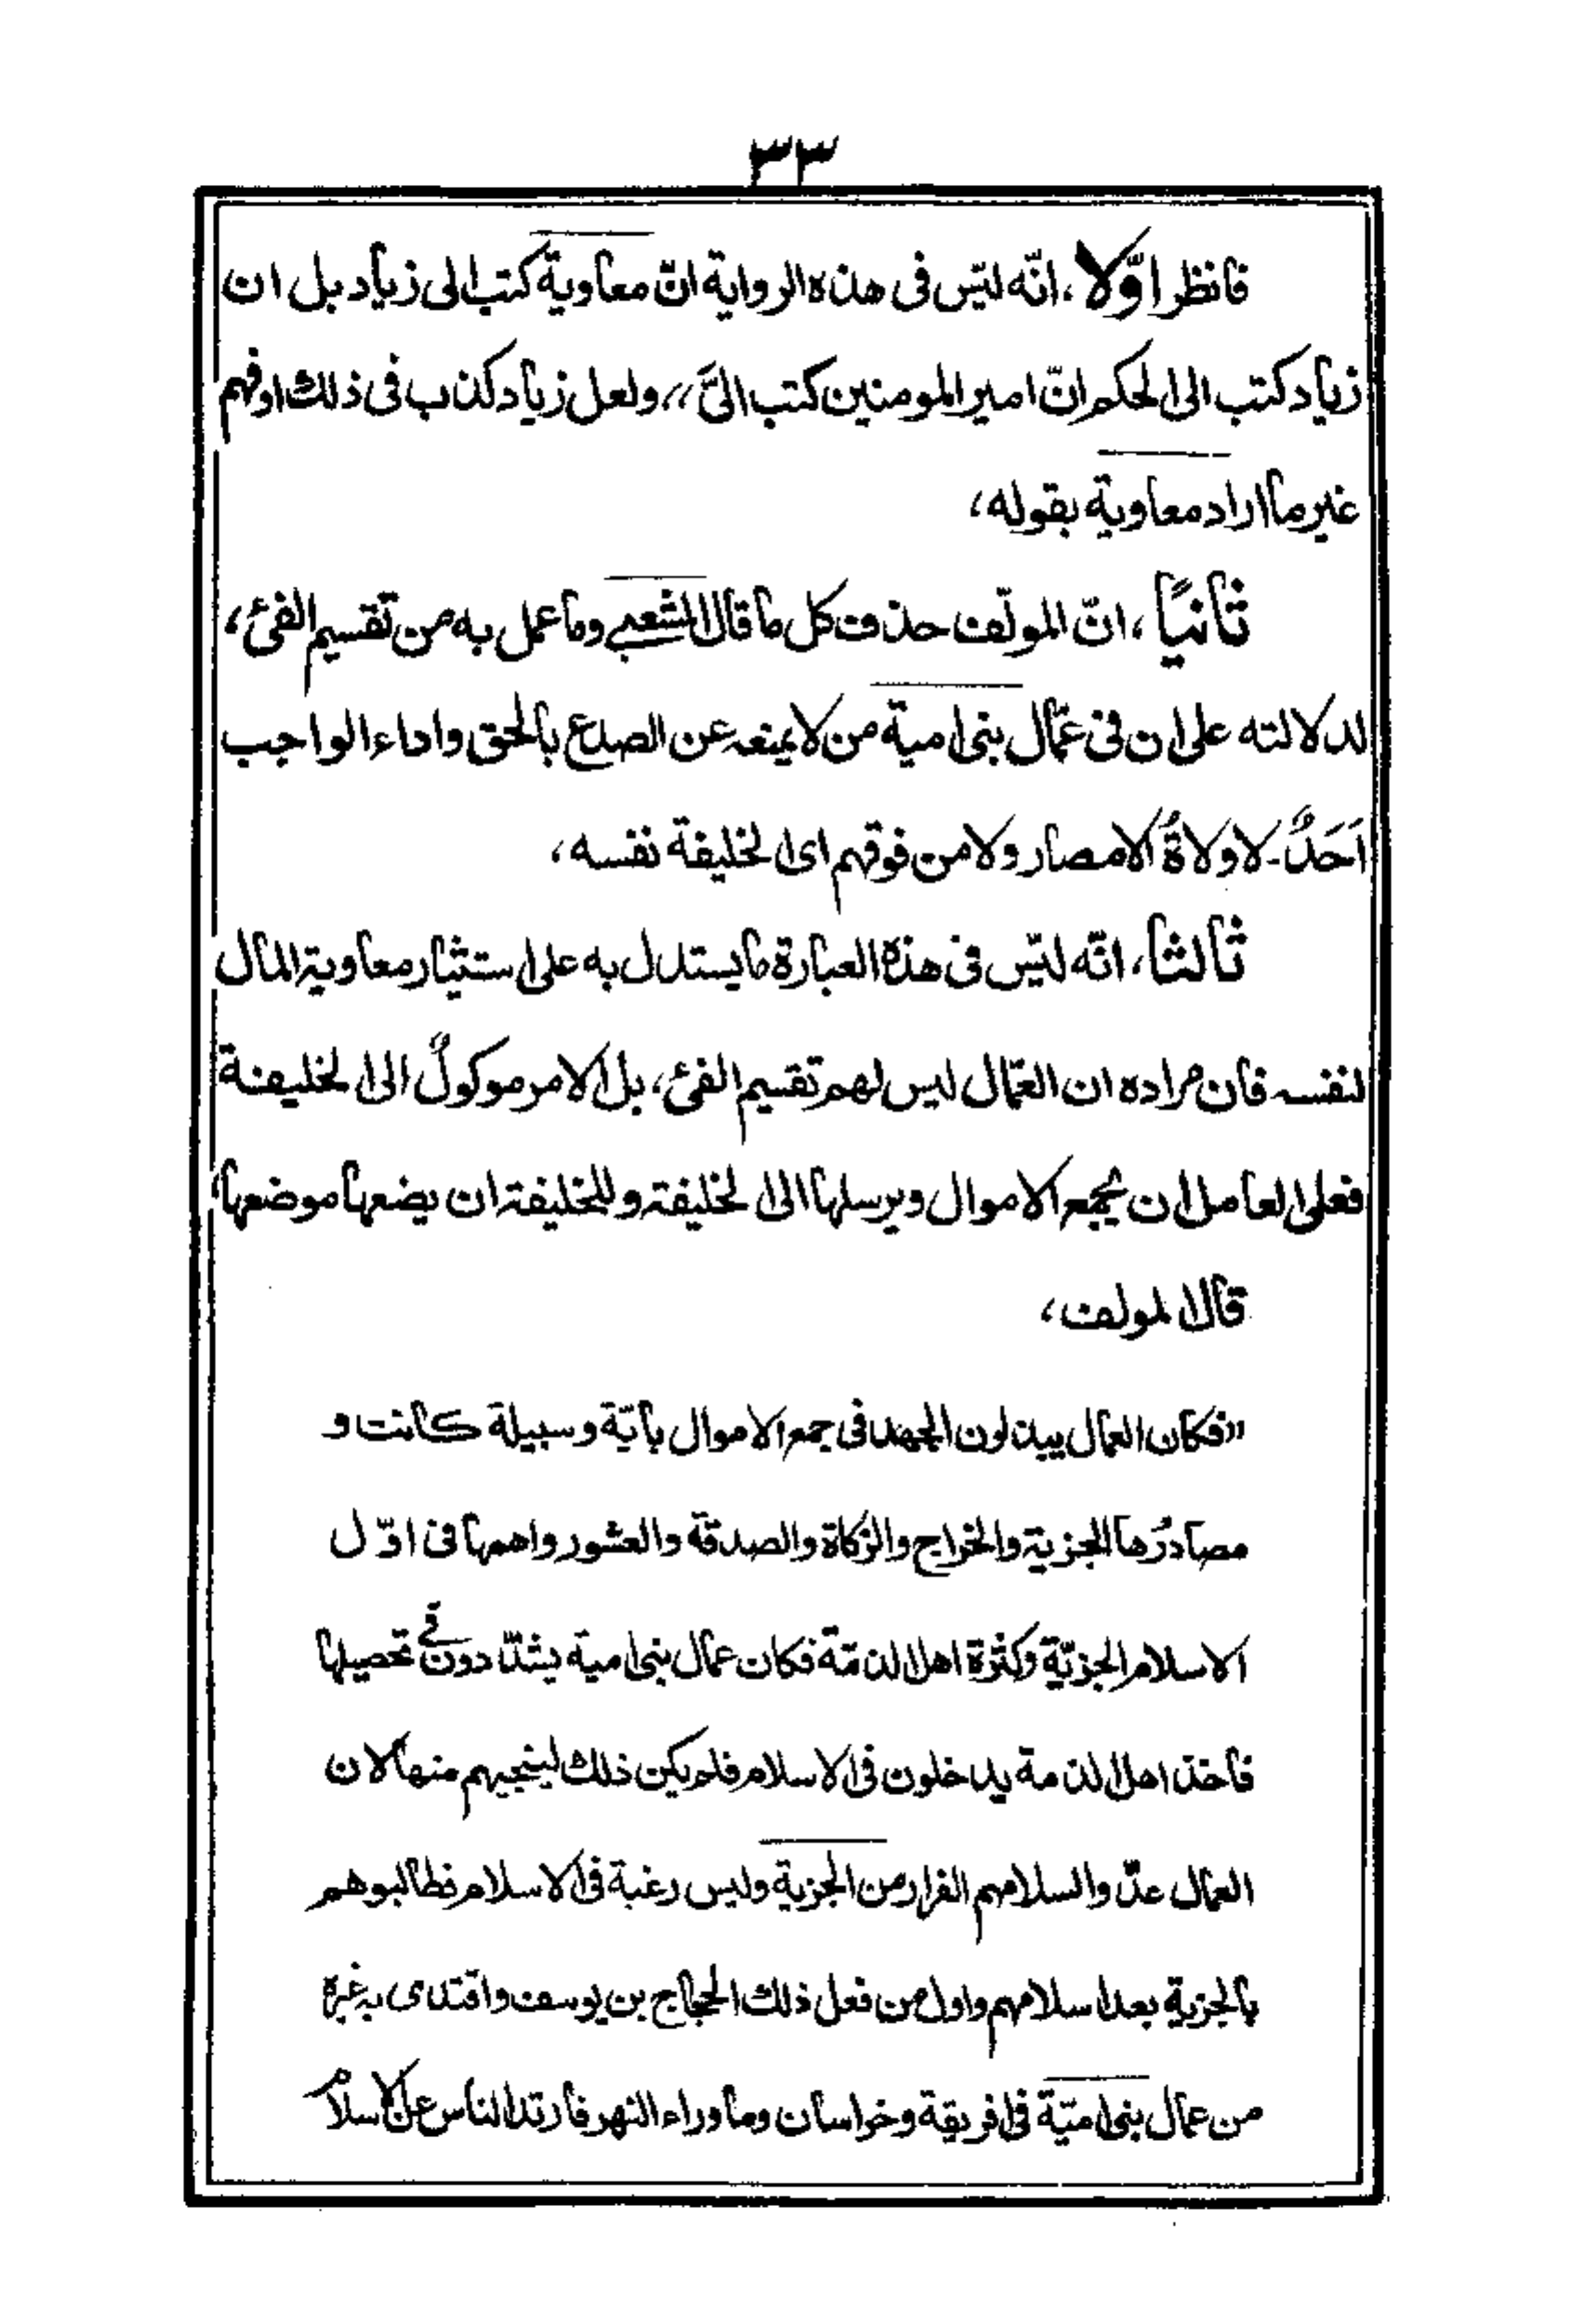 ٣٣
فانظر اوّلا، انّه ليس فى هذه الرواية انّ معاوية كتب الى زياد بل ان
زياد كتب الى الحكم انّ امير المومنين كتب الىّ،، ولعل زياد كذب فى ذلك او فهم
غير ما اراد معاوية بقوله،
ثانيًا، انّ المولّف حذف كل ما قال الشعبى وما عمل به من تقسيم الفئ،
لدلالته على ان فى عمّال بنى امية من لا يمنعه عن الصدع بالحق واداء الواجب
اَحَدٌ- لا ولاةُ الامصار ولا من فوقهم اى الخليفة نفسه،
ثالثا، انّه ليس فى هذه العبارة ما يستدل به على استيثار معاوية المال
لنفسه فان مراده ان العمّال ليس لهم تقسيم الفئ، بل الامر موكولٌ الى الخليفة
فعلى العامل ان يجمع الاموال ويرسلها الى الخليفة وللخليفة ان يضعها موضعها،
قال المولف،
،،فكان العمال يبذلون الجهد فى جمع الاموال باَيّة وسيلة كانت و
مصادرُها الجزية والخراج والزكاة والصدقة والعشور واهمها فى اوّل
الاسلام الجزيّة وكثرة اهل الذمّة فكان عمال بنى امية يشدّدون فى تحصيلها
فاخذ اهل الذمة يدخلون فى الاسلام فلم يكن ذلك لينجيهم منها لان
العمال عدّوا اسلامهم الفرار من الجزية وليس رغبة فى الاسلام فطالبوهم
بالجزية بعد اسلامهم واول من فعل ذلك الحجاج بن يوسف واقتدى به غيره
من عمال بنى اميّة فى افريقة وخراسان وما وراء النهر فارتد الناس عن الاسلام